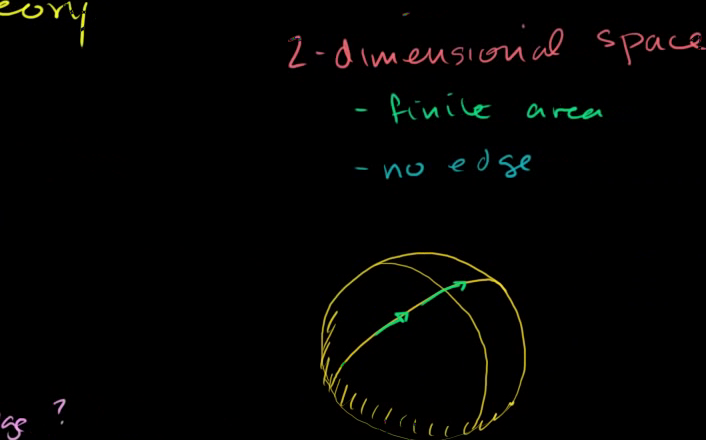 eory
2-dimensional space
- finite area
- no edge
ge ?